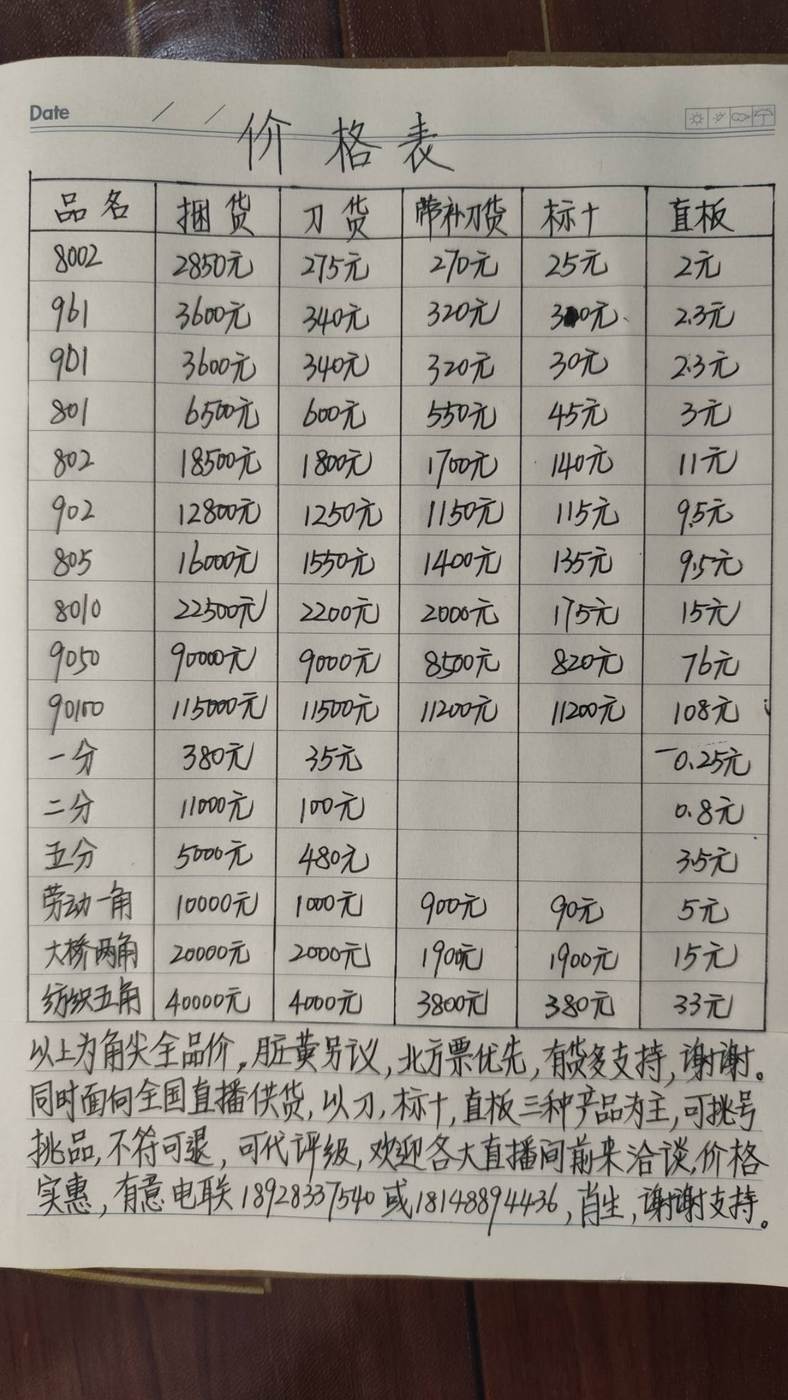 Date / /
价格表
品名 捆货 刀货 带补刀货 标十 直板
8002 2850元 275元 270元 25元 2元
961 3600元 340元 320元 30元 2.3元
901 3600元 340元 320元 30元 2.3元
801 6500元 600元 550元 45元 3元
802 18500元 1800元 1700元 140元 11元
902 12800元 1250元 1150元 115元 9.5元
805 16000元 1550元 1400元 135元 9.5元
8010 22500元 2200元 2000元 175元 15元
9050 90000元 9000元 8500元 820元 76元
90100 115000元 11500元 11200元 11200元 108元
一分 380元 35元 0.25元
二分 11000元 100元 0.8元
五分 5000元 480元 3.5元
劳动一角 10000元 1000元 900元 90元 5元
大桥两角 20000元 2000元 1900元 1900元 15元
纺织五角 40000元 4000元 3800元 380元 33元
以上为角尖全品价,脏黄另议,北方票优先,有货多支持,谢谢。
同时面向全国直播供货,以刀,标十,直板三种产品为主,可挑号
挑品,不符可退,可代评级,欢迎各大直播间前来洽谈,价格
实惠,有意电联18928337540或18148894436,肖生,谢谢支持。